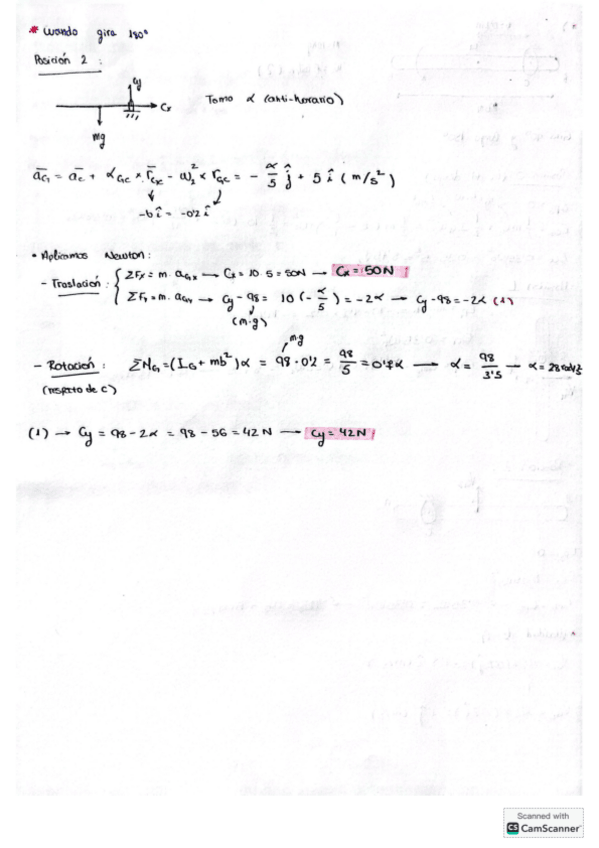 * Cuando gira 180°
Posición 2 :
Cy
Cx
mg
Tomo α (anti-horario)
a̅G = a̅c + αGC × r̅Gx - ω₂² × rGC = - α/5 ĵ + 5 î (m/s²)
-b î = -0'2 î
• Aplicamos Newton:
- Traslación : { ΣFx = m·aGx → Cx = 10·5 = 50N → Cx = 50N
ΣFy = m·aGy → Cy - 98 = 10 (-α/5) = -2α → Cy - 98 = -2α (1)
(m·g)
mg
- Rotación : ΣMG = (IG + mb²)α = 98·0'2 = 98/5 = 0'7α → α = 98/3'5 → α = 28 rad/s²
(respecto de C)
(1) → Cy = 98 - 2α = 98 - 56 = 42 N → Cy = 42N
Scanned with
CS CamScanner